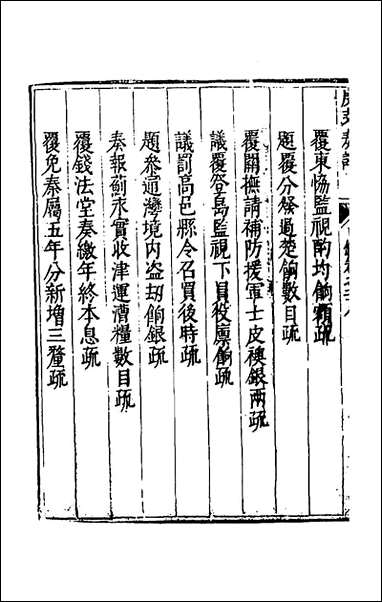 覆東恊監視酌均餉額疏
題覆分發過楚餉數目疏
覆關撫請補防援軍士皮襖銀兩疏
議覆登島監視下員役廪餉疏
議罰高邑縣令召買後時疏
題參通灣境内盗刧餉銀疏
奏報薊永實收津運漕糧數目疏
覆錢法堂奏繳年終本息疏
覆免秦屬五年分新增三釐疏